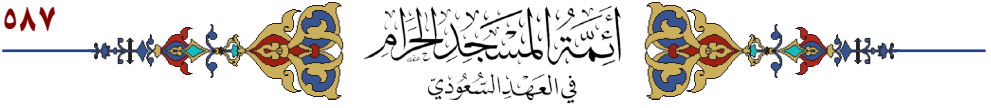 ٥٨٧
أَئِمَّةُ المَسْجِدِ الحَرَامِ
فِي العَهْدِ السُّعُودِيّ